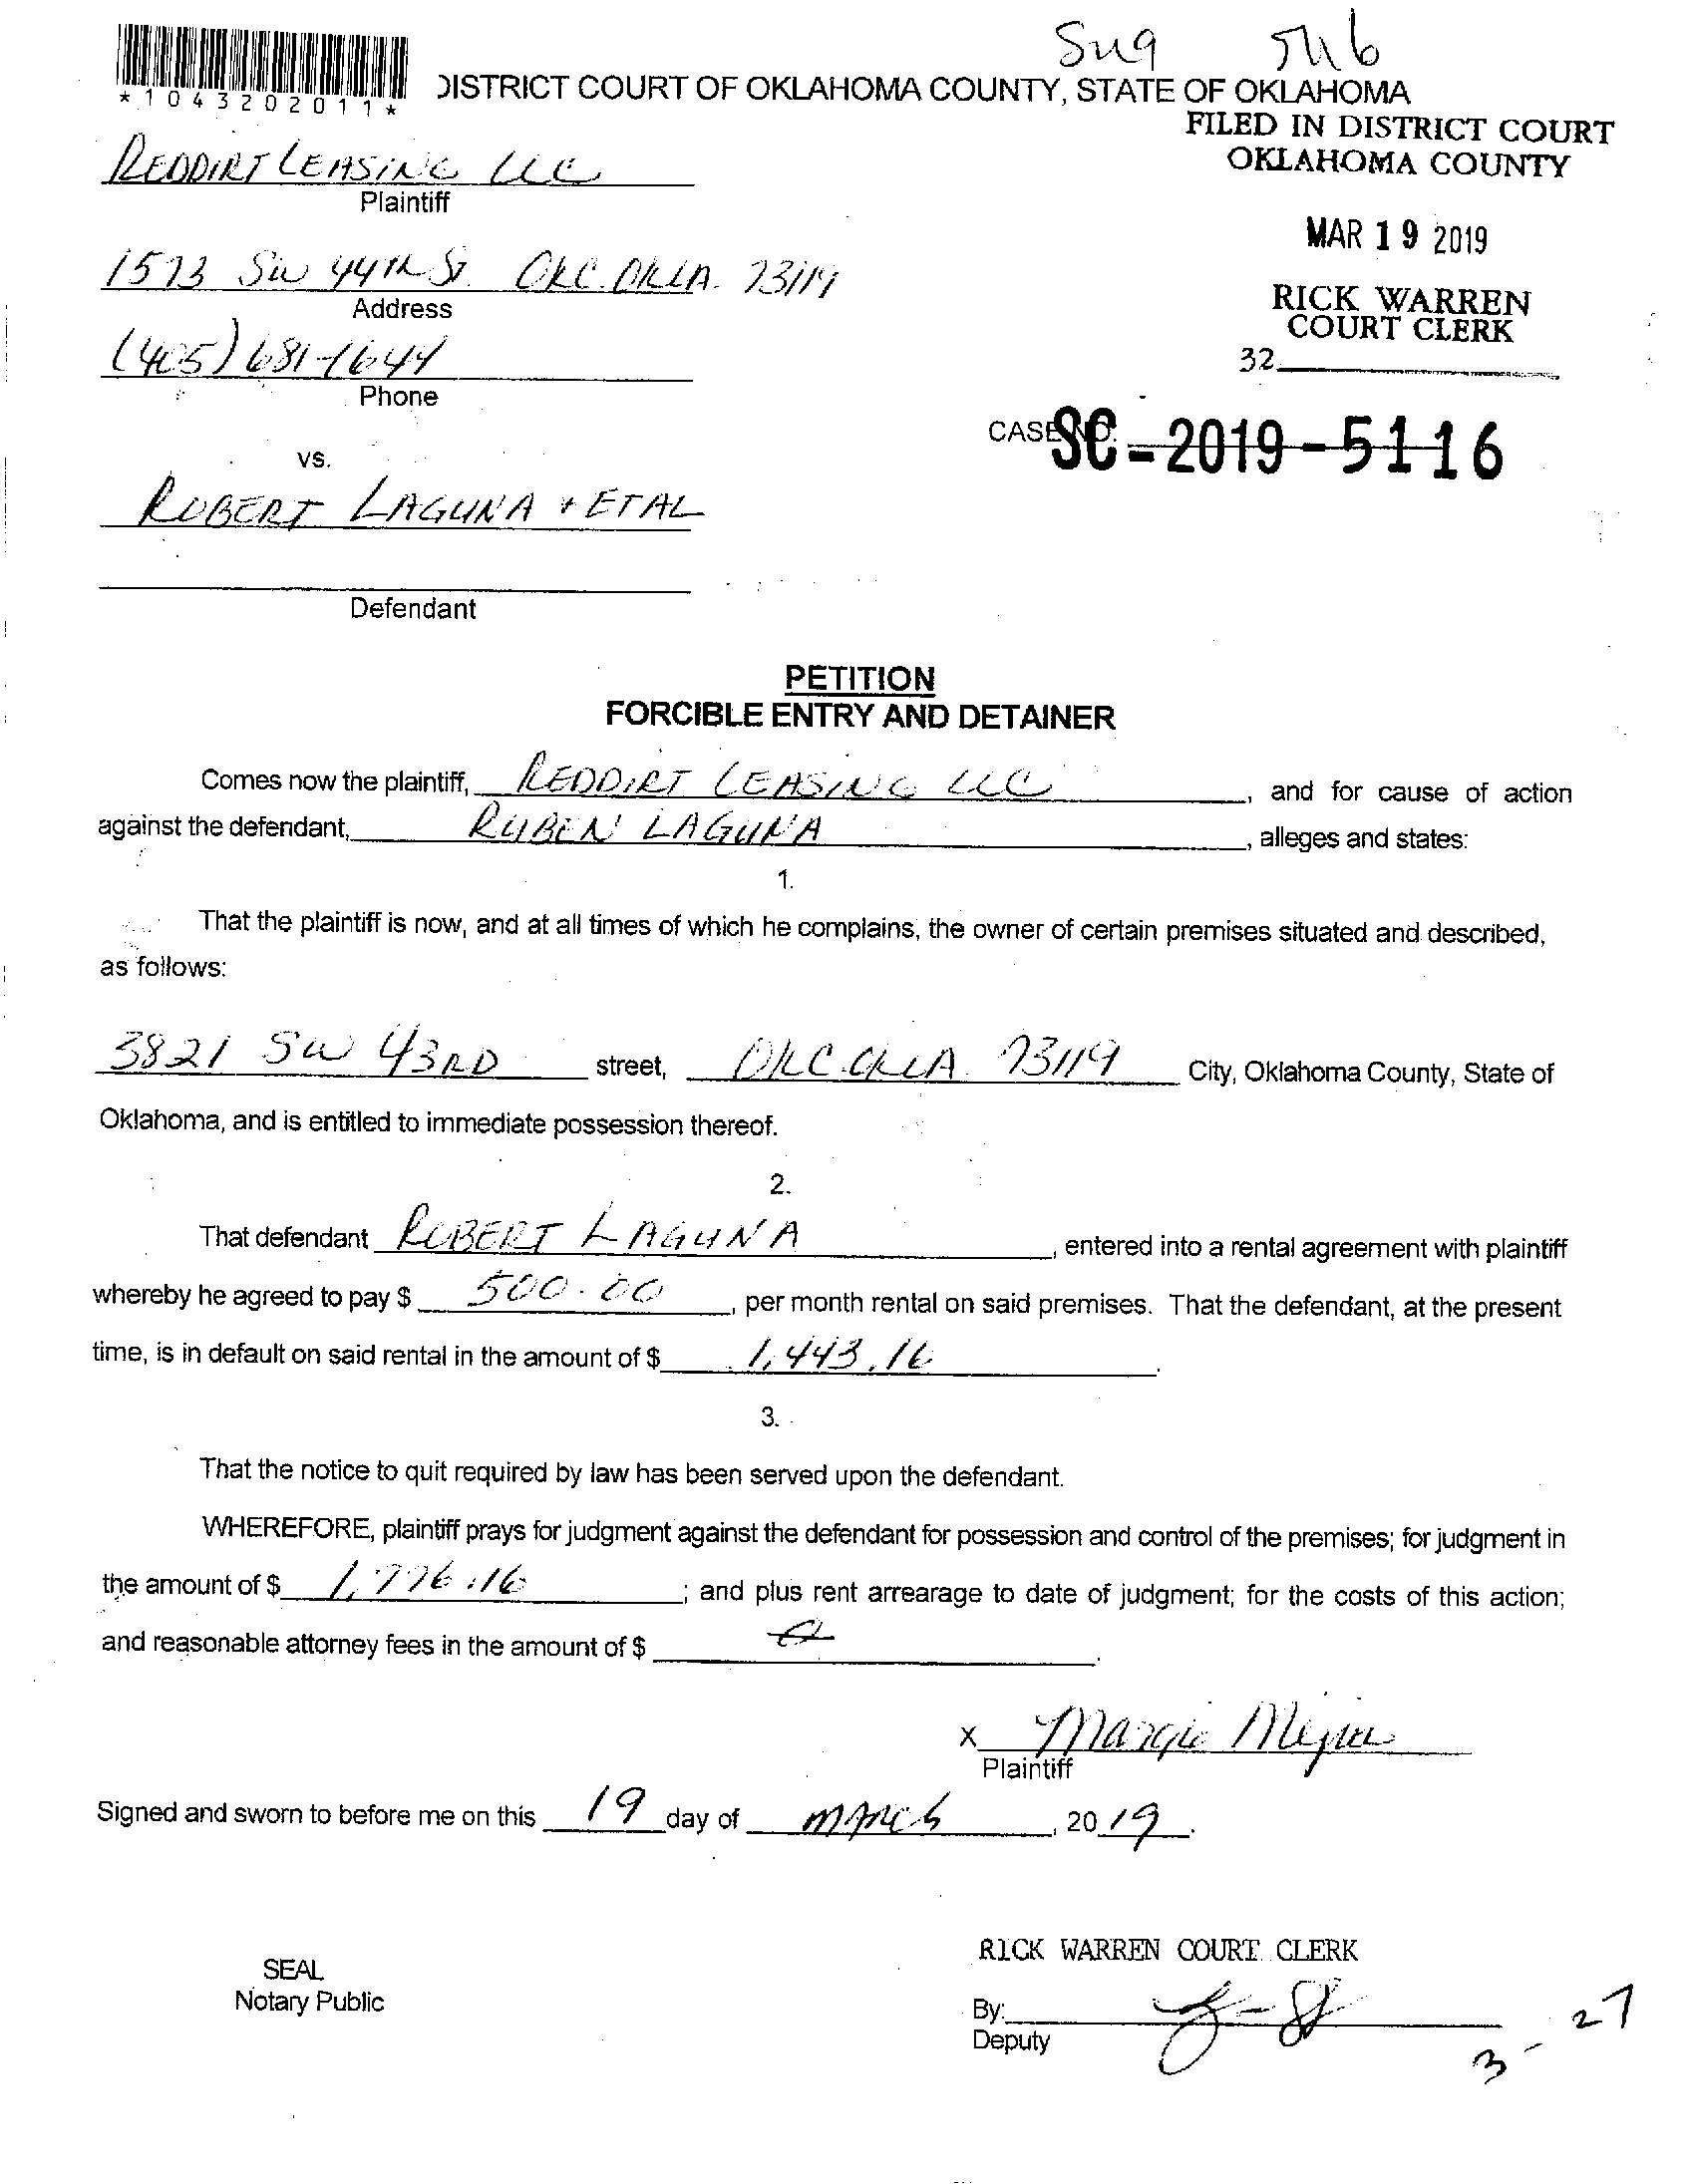 Sug 5116
*1043202011*
DISTRICT COURT OF OKLAHOMA COUNTY, STATE OF OKLAHOMA
FILED IN DISTRICT COURT
OKLAHOMA COUNTY
REDDIRT LEASING LLC
Plaintiff
MAR 19 2019
1573 SW 44th St. OKC. OKLA. 73119
Address
RICK WARREN
COURT CLERK
(405) 681-1644
32
Phone
CASE NO. SC-2019-5116
vs.
ROBERT LAGUNA + ETAL
Defendant
PETITION
FORCIBLE ENTRY AND DETAINER
Comes now the plaintiff, REDDIRT LEASING LLC, and for cause of action
against the defendant, RUBEN LAGUNA, alleges and states:
1.
That the plaintiff is now, and at all times of which he complains, the owner of certain premises situated and described,
as follows:
3821 SW 43RD street, OKC. OKLA. 73119 City, Oklahoma County, State of
Oklahoma, and is entitled to immediate possession thereof.
2.
That defendant ROBERT LAGUNA, entered into a rental agreement with plaintiff
whereby he agreed to pay $ 500.00, per month rental on said premises. That the defendant, at the present
time, is in default on said rental in the amount of $ 1,443.16.
3.
That the notice to quit required by law has been served upon the defendant.
WHEREFORE, plaintiff prays for judgment against the defendant for possession and control of the premises; for judgment in
the amount of $ 1,776.16; and plus rent arrearage to date of judgment; for the costs of this action;
and reasonable attorney fees in the amount of $
x Margie Mejia
Plaintiff
Signed and sworn to before me on this 19 day of MARCh, 2019.
RICK WARREN COURT CLERK
SEAL
Notary Public
By:
Deputy
3-27